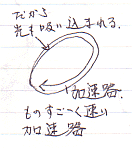 だから
光も吸い込まれる.
加速器.
ものすごーく速い
加速器